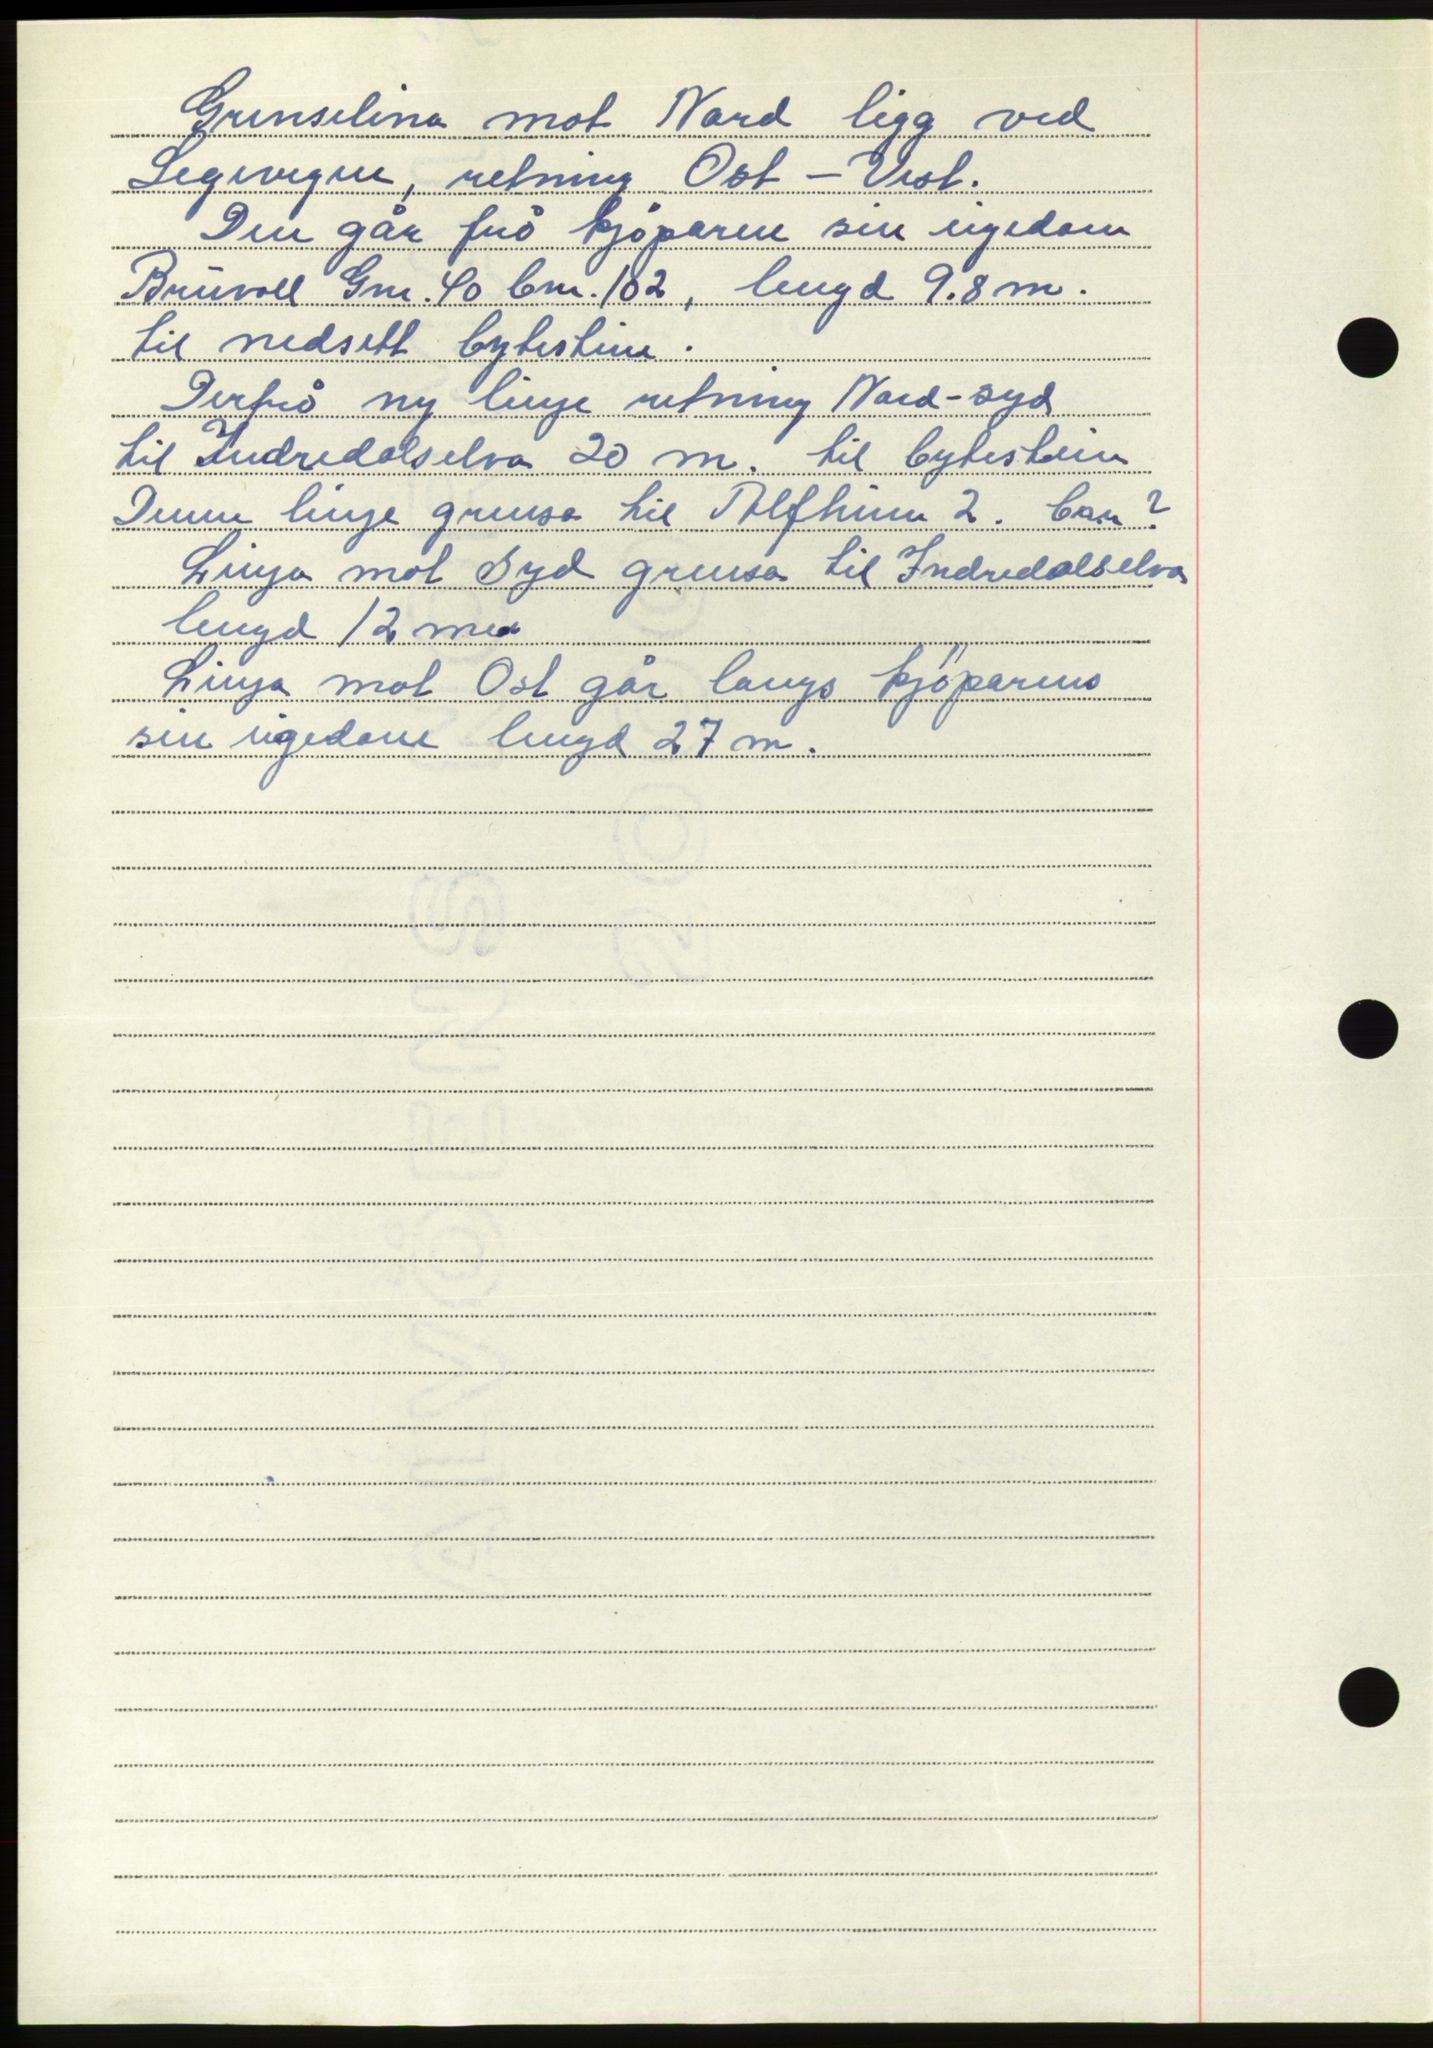 Grenselina mot Nord ligg ved
Legevegen, retning Ost – Vest.
Den går frå kjöparen sin eigedom
Brüvoll Gnr. 40 bnr. 102, lengd 9.8 m.
til nedsett bytestein.
Derfrå ny linje retning Nord-syd
til Indredalselva 20 m. til bytestein
Denne linje grensa til Alfheim 2. bnr ?
Linja mot Syd grensa til Indredalselva
lengd 12 m
Linja mot Ost går langs kjöparens
sin eigedom lengd 27 m.